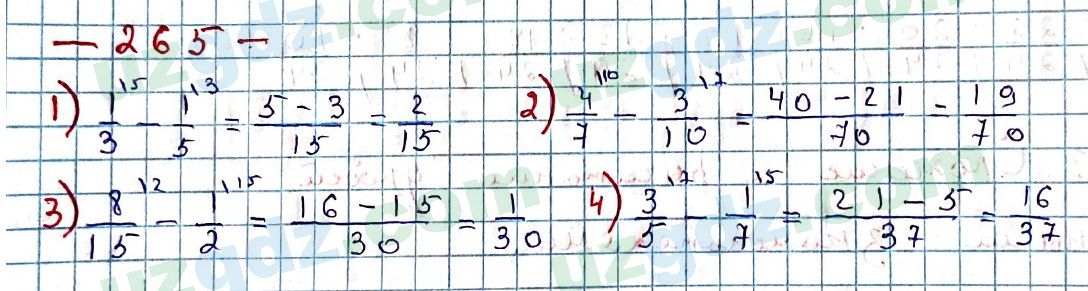 — 265 —
1) 1/3 ⁵ − 1/5 ³ = (5 − 3)/15 = 2/15 2) 4/7 ¹⁰ − 3/10 ⁷ = (40 − 21)/70 = 19/70
3) 8/15 ² − 1/2 ¹⁵ = (16 − 15)/30 = 1/30 4) 3/5 ⁷ − 1/7 ⁵ = (21 − 5)/37 = 16/37
uzgdz.com